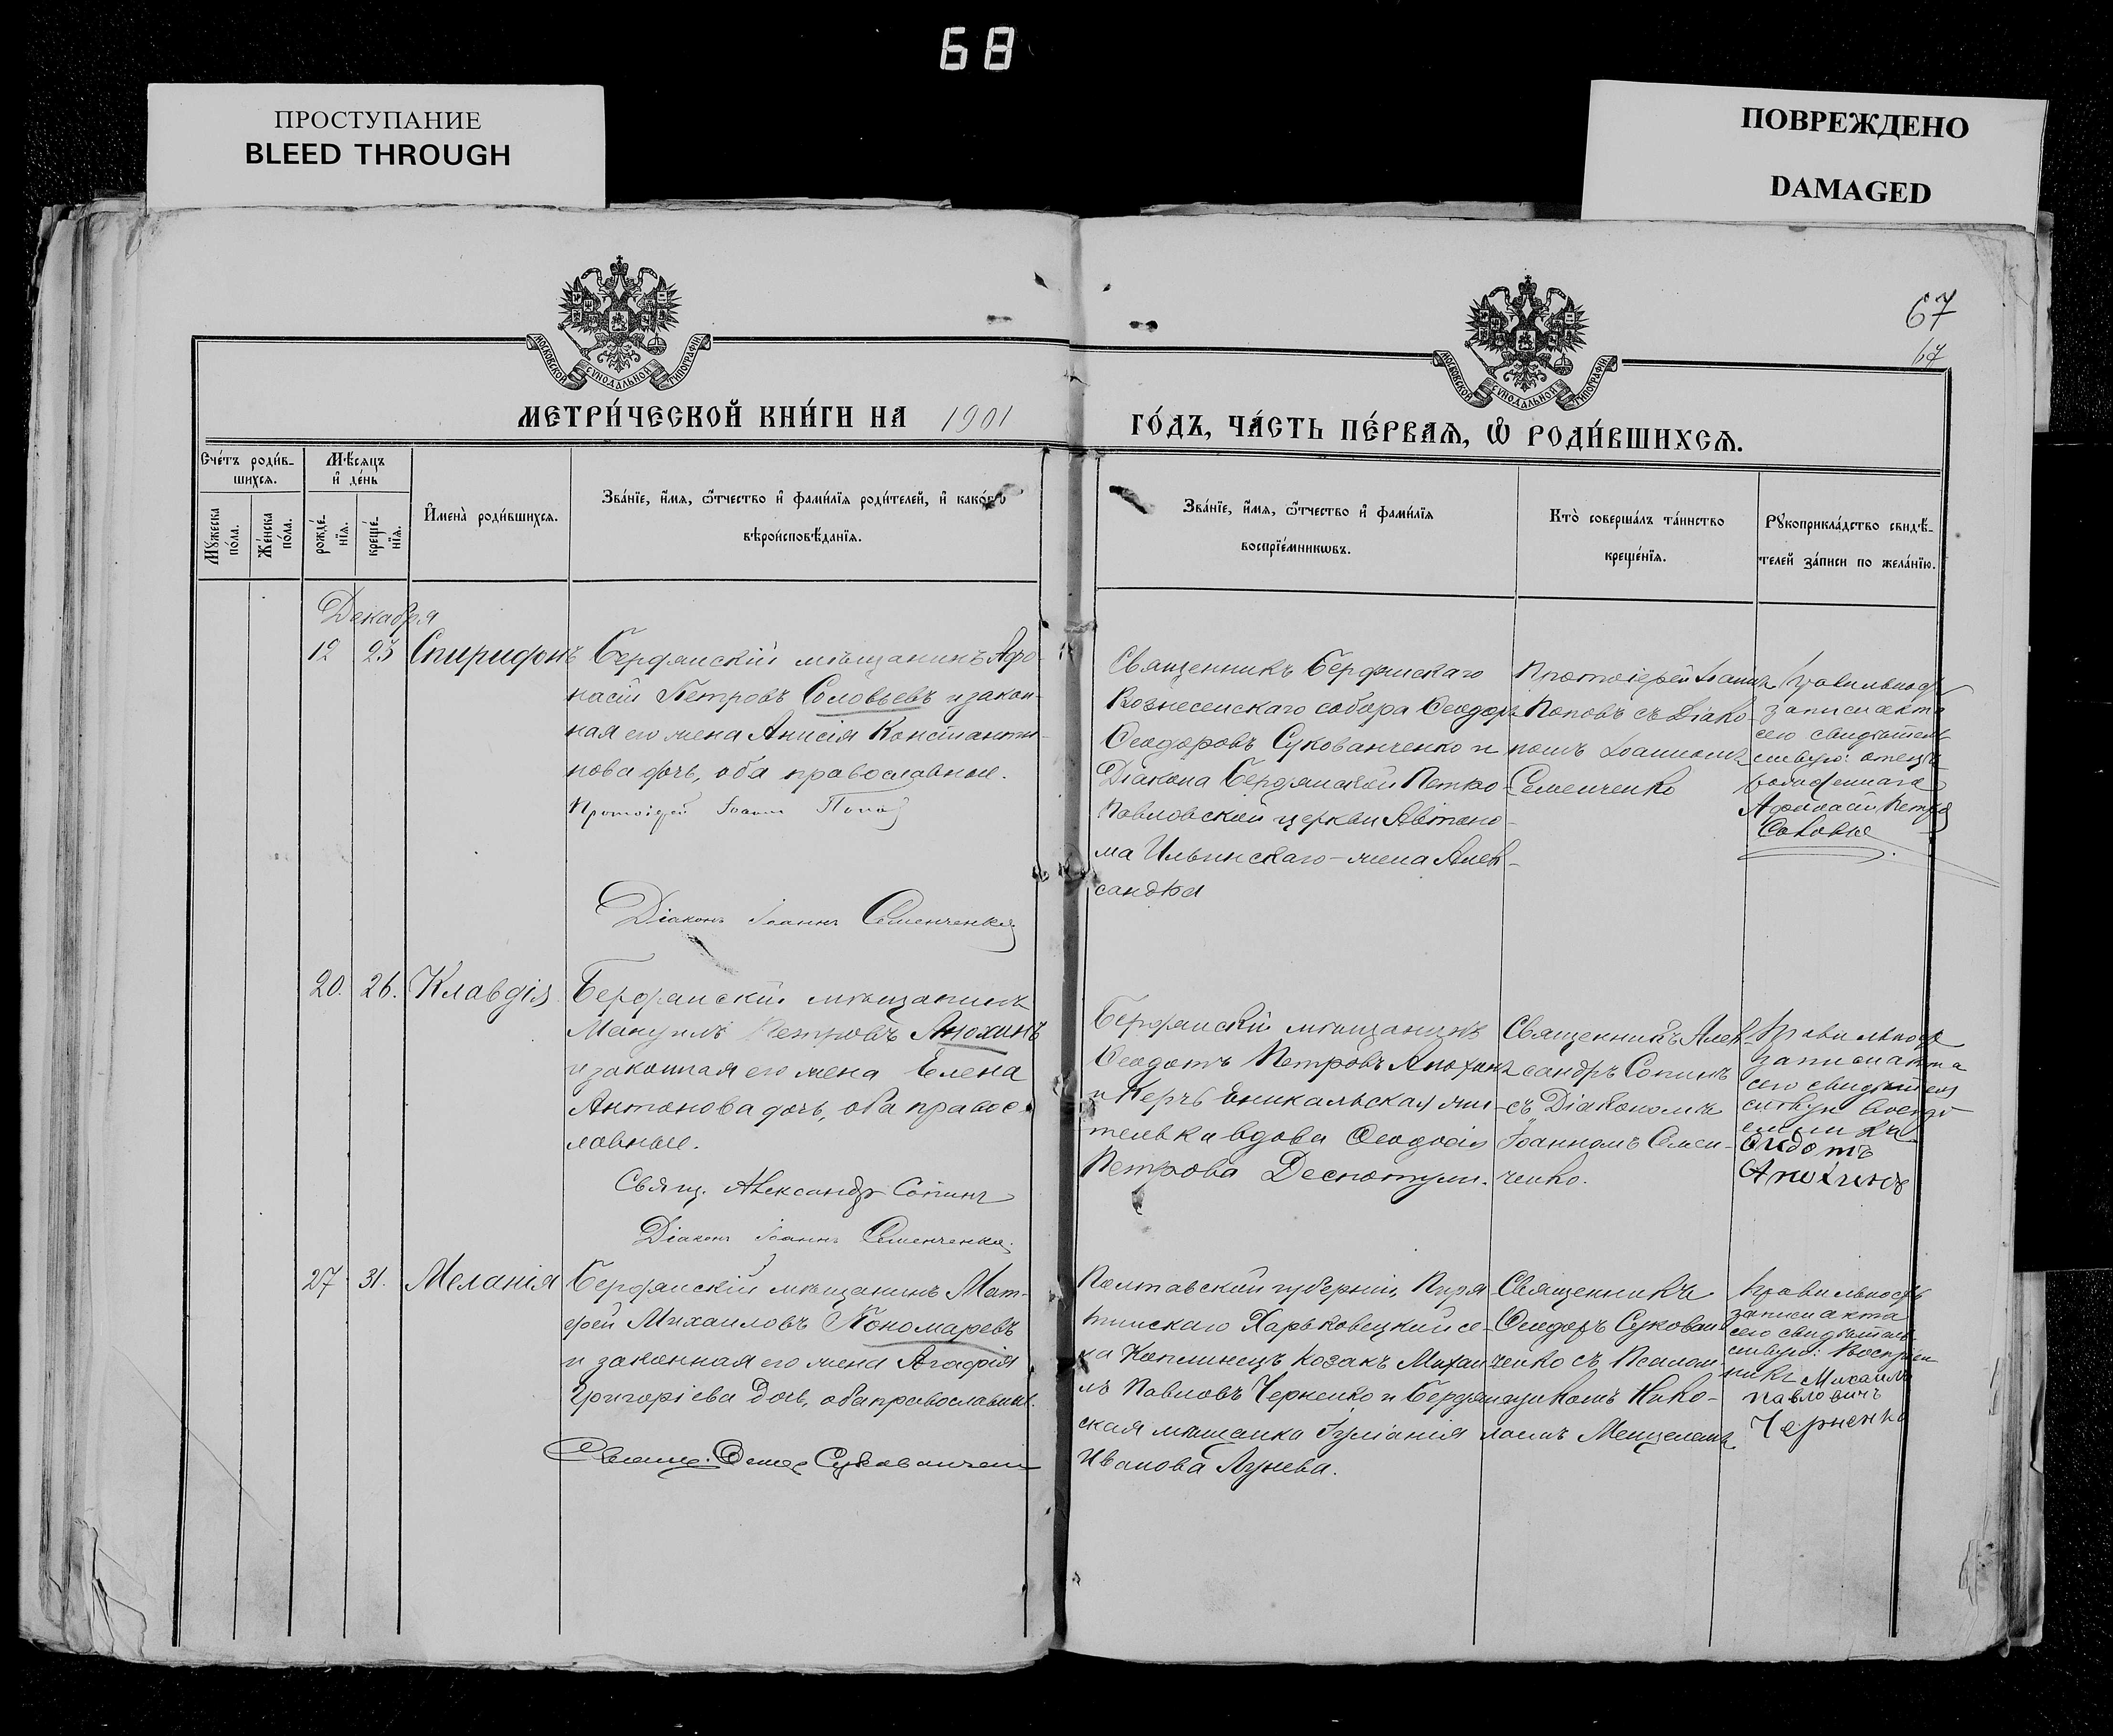 68
ПРОСТУПАНИЕ
BLEED THROUGH
ПОВРЕЖДЕНО
DAMAGED
67
67
МОСКОВСКОЙ СУНОДАЛЬНОЙ ТИПОГРАФІИ
МОСКОВСКОЙ СУНОДАЛЬНОЙ ТИПОГРАФІИ
МЕТРИ́ЧЕСКОЙ КНИ́ГИ НА 1901
ГО́ДЪ, ЧА́СТЬ ПЕ́РВАѦ, Ѡ҆ РОДИ́ВШИХСѦ.
Сче́тъ роди́в-
шихсѧ.
Мѣ́сѧцъ
и҆ де́нь
Мꙋ́жеска
по́ла.
Же́нска
по́ла.
рожде́-
нїѧ.
креще́-
нїѧ.
И҆мена̀ роди́вшихсѧ.
Зва́нїе, и҆́мѧ, ѻ҆́тчество и҆ фами́лїѧ роди́телей, и҆ како́гѡ
вѣроисповѣ́данїѧ.
Зва́нїе, и҆́мѧ, ѻ҆́тчество и҆ фами́лїѧ
воспрїе́мникѡвъ.
Кто̀ соверша́лъ та́инство
креще́нїѧ.
Рꙋкоприкла́дство свидѣ́-
телей за́писи по жела́нїю.
Декабря
12 25 Спиридонъ Бердянскій мѣщанинъ Афо-
насій Петровъ Соловьевъ и закон-
ная его жена Анисія Константи-
нова дочь, оба православные.
Протоіерей Іоаннъ Поповъ
Діаконъ Іоаннъ Семенченко
Священникъ Бердянскаго
Вознесенскаго собора Ѳеодоръ
Ѳеодоровъ Сукованченко и
Діакона Бердянской Петро-
Павловской церкви Автоно-
ма Ильинскаго - жена Алек-
сандра
Протоіерей Іоаннъ
Поповъ съ Діако-
номъ Іоанномъ
Семенченко
Правильность
записи акта
сего свидѣтель-
ствую: отецъ
рожденнаго
Афонасій Петровъ
Соловье
20. 26. Клавдія Бердянскій мѣщанинъ
Мануилъ Петровъ Анохинъ
и законная его жена Елена
Антонова дочь, оба правос-
лавные.
Свящ. Александръ Сопинъ
Діаконъ Іоаннъ Семенченко.
Бердянскій мѣщанинъ
Ѳеодотъ Петровъ Анохинъ
и Керчь Еникальская жи-
телька вдова Ѳеодосія
Петрова Деспотули.
Священникъ Алек-
сандръ Сопинъ
съ Діакономъ
Іоанномъ Семен-
ченко.
Правильность
записи акта
сего свидѣтель
ствую Воспрі
емникъ
Ѳидотъ
Анохинъ
27 31. Меланія Бердянскій мѣщанинъ Мат-
ѳей Михаиловъ Пономаревъ
и законная его жена Агафія
Григоріева дочь, оба православные.
Священ. Ѳеодоръ Сукованченко
Полтавской губерніи, Пиря
тинскаго Харьковецкій се-
ла Коплинецъ козакъ Михаи
лъ Павловъ Черненко и Бердян
ская мѣщанка Іуліанія
Иванова Лунева.
Священникъ
Ѳеодоръ Сукован
ченко съ Псалом
щикомъ Нико-
лаемъ
Правильность
записи акта
сего свидѣтель-
ствую: Воспріем
никъ Михаилъ
Павловичъ
Черненко